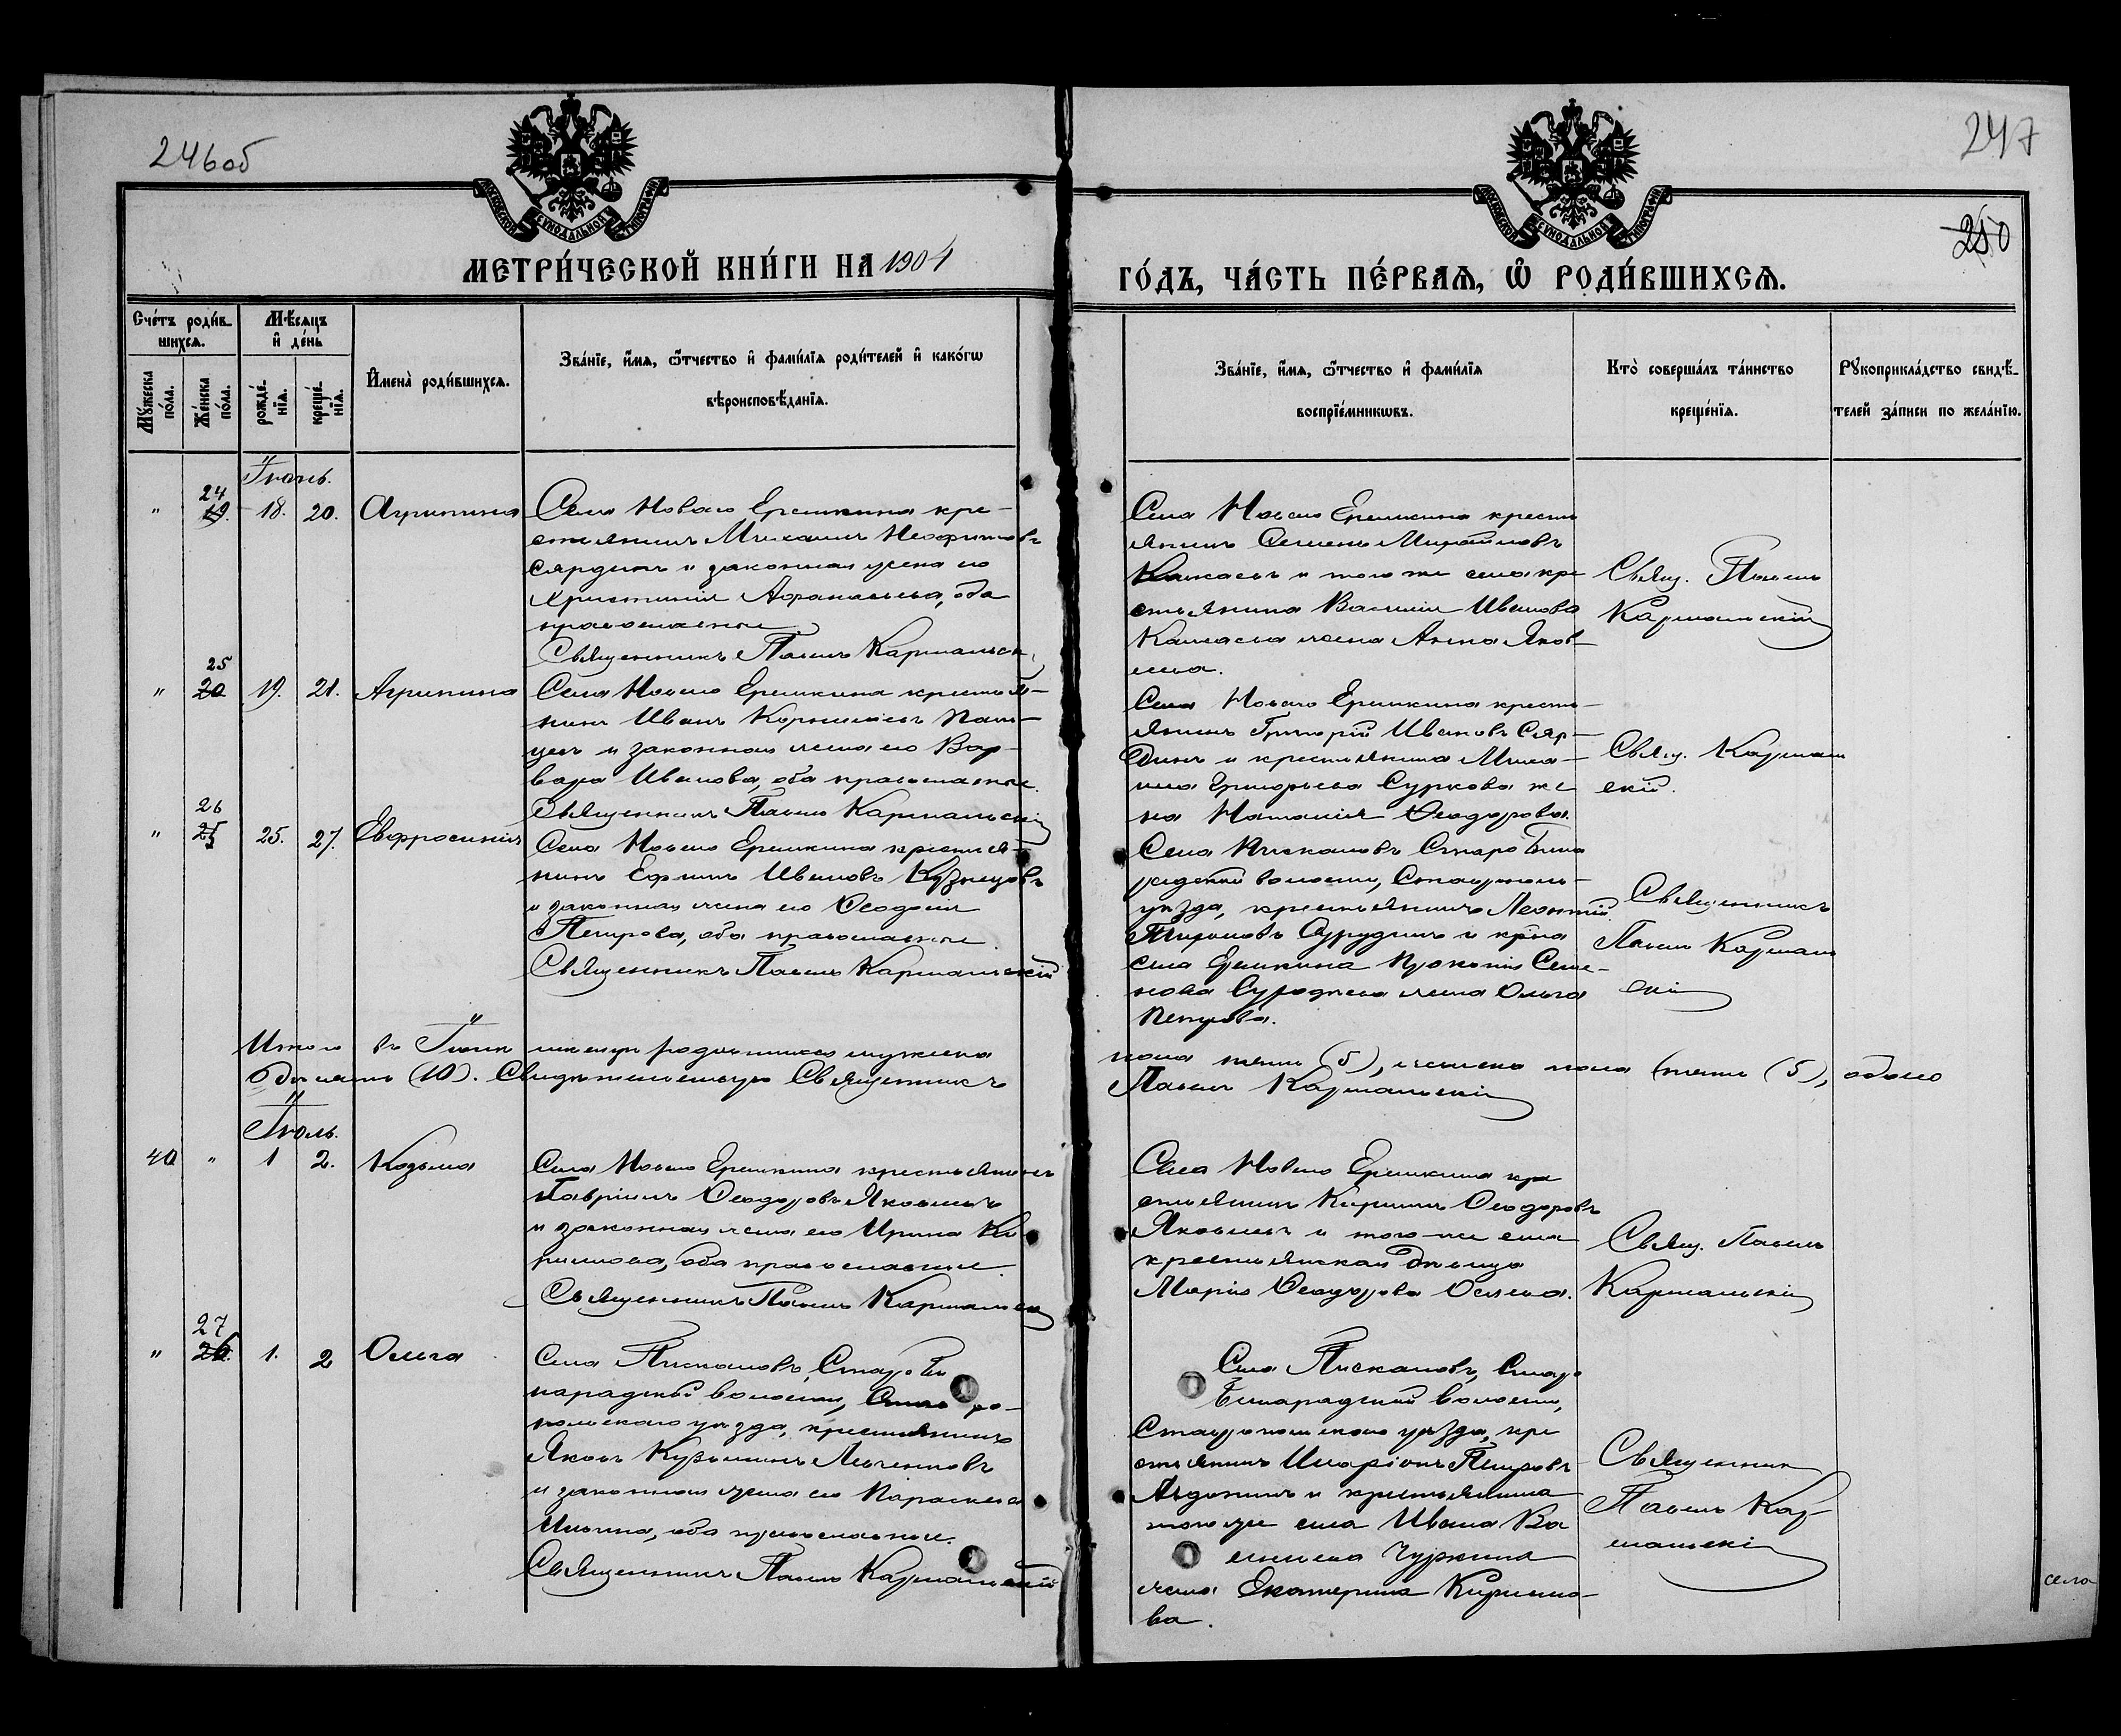 246об
247
250
МОСКОВСКОЙ СУНОДАЛЬНОЙ ТИПОГРАФІИ
МОСКОВСКОЙ СУНОДАЛЬНОЙ ТИПОГРАФІИ
МЕТРИ́ЧЕСКОЙ КНИ́ГИ НА 1904
ГО́ДЪ, ЧА́СТЬ ПЕ́РВАѦ, Ѡ҆ РОДИ́ВШИХСѦ.
Сче́тъ роди́в-
шихсѧ.
Мѣ́сѧцъ
и҆ де́нь
Мꙋ́жеска
по́ла.
Же́нска
по́ла.
рожде́-
нїѧ.
креще́-
нїѧ.
И҆мена̀ роди́вшихсѧ.
Зва́нїе, и҆́мѧ, ѻ҆́тчество и҆ фами́лїѧ роди́телей и҆ како́гѡ
вѣроисповѣ́данїѧ.
Зва́нїе, и҆́мѧ, ѻ҆́тчество и҆ фами́лїѧ
воспрїе́мникѡвъ.
Кто̀ соверша́лъ та́инство
креще́нїѧ.
Рꙋкоприкла́дство свидѣ́-
телей за́писи по жела́нїю.
Іюнь.
24
" 19. 18. 20. Агрипина
Села Новаго Еремкина кре-
стьянинъ Михаилъ Неофитовъ
Сярдинъ и законная жена его
Христинія Афанасьева, оба
православные
Священникъ Павелъ Кармальск
Села Новаго Еремкина кресть
янинъ Семенъ Михайловъ
и того же села кре
стьянина Василія Иванова
жена Анна Яков-
лева.
Свящ. Павелъ
Кармальскій
25
" 20 19. 21. Агрипина
Села Новаго Еремкина крестья-
нинъ Иванъ Корнилаевъ
и законная жена его Вар-
вара Иванова, оба православные.
Священникъ Павелъ Кармальскій
Села Новаго Еремкина кресть-
янинъ Григорій Ивановъ Сяр-
динъ и крестьянина Миха-
ила Григорьева Суркова же
на Наталія Ѳеодорова.
Свящ. Кармаль
скій.
26
" 25. 27. Евфросинія
Села Новаго Еремкина крестья-
нинъ Ефимъ Ивановъ Кузнецовъ
и законная жена его Ѳеодосія
Петрова, оба православные.
Священникъ Павелъ Кармальскій
Села Пискаловъ Старо Бина
радской волости, Ставрополь-
уѣзда, крестьянинъ Леонтій
и кр-на
села Еремкина Прокопія Семе-
нова жена Ольга
Петрова.
Священникъ
Павелъ Кармаль
скій
Итого въ Іюнѣ мѣсяцѣ родившихся мужеска
пола пять (5), женска пола пять (5), обоего
десять (10). Свидѣтельствую Священникъ
Павелъ Кармальскій
Іюль.
40 " 1 2. Козьма
Села Новаго Еремкина крестьянинъ
Гавріилъ Ѳеодоровъ Яковлевъ
и законная жена его Ирина Ки
рилова, оба православные.
Священникъ Павелъ Кармальскій
Села Новаго Еремкина кре
стьянинъ Кирилъ Ѳеодоровъ
Яковлевъ и того-же села
крестьянская дѣвица
Марія Ѳеодорова
Свящ. Павелъ
Кармальскій
27
" 26. 1. 2 Ольга
Села Пискаловъ, Старо Би
нарадской волости, Ставро-
польскаго уѣзда, крестьянинъ
Яковъ Кузьминъ
и законная жена его Параскева
Ильина, оба православные.
Священникъ Павелъ Кармальскій
Села Пискаловъ, Старо
Бинарадской волости,
Ставропольскаго уѣзда, кре
стьянинъ Иларіонъ Петровъ
Авдонинъ и крестьянина
того же села Ивана Ва
Чуркина
жена Екатерина Кирило-
ва.
Священник
Павелъ Кар-
мальскій
села